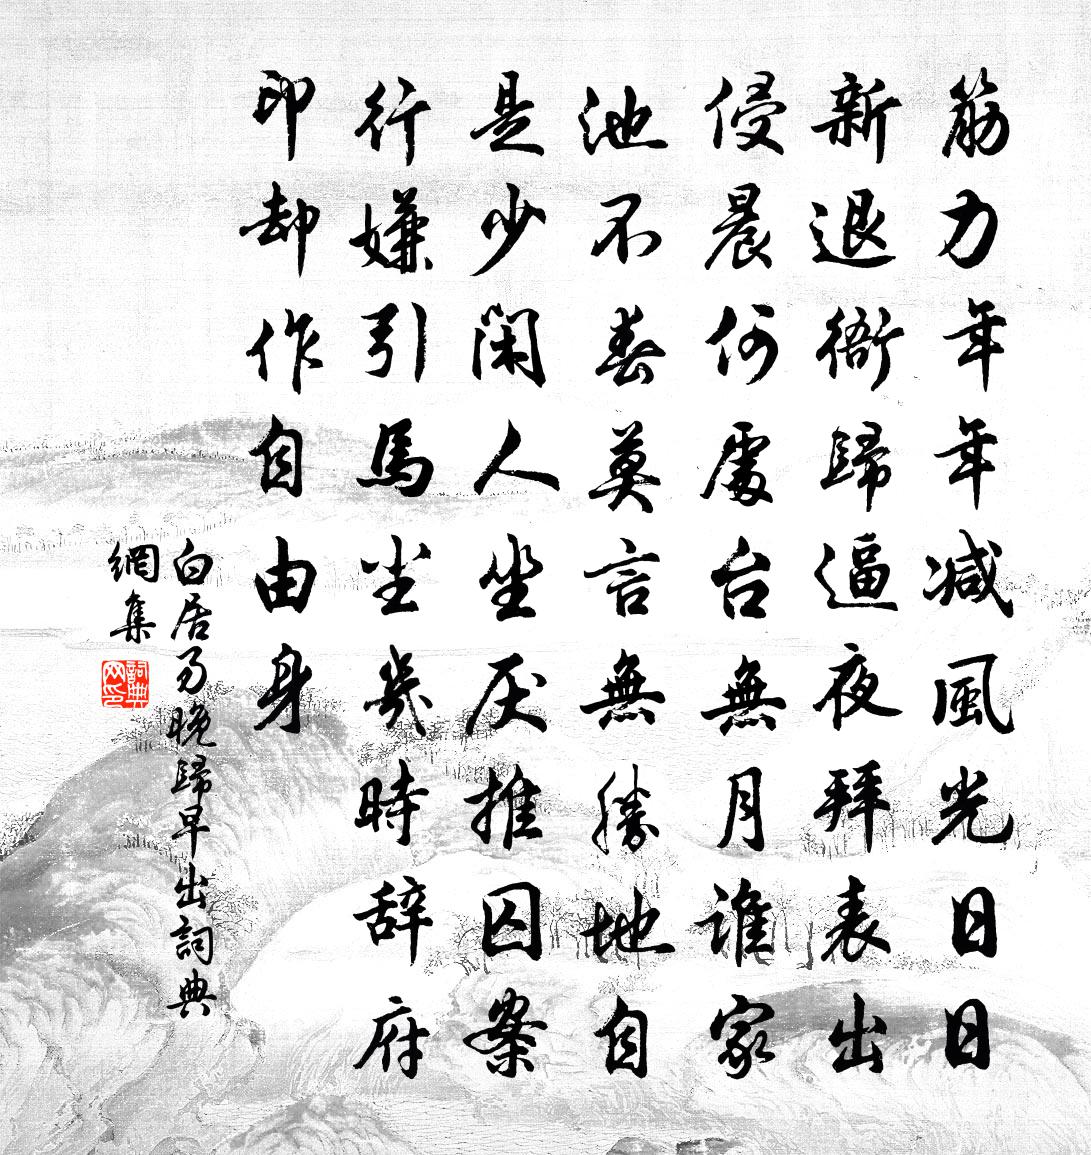 筋力年年减風光日日
新退衙歸逼夜拜表出
侵晨何處台無月誰家
池不春莫言無勝地自
是少閑人坐厌推囚案
行嫌引馬尘幾時辞府
印却作自由身
白居易晚歸早出詞典
網集
詞典
网印